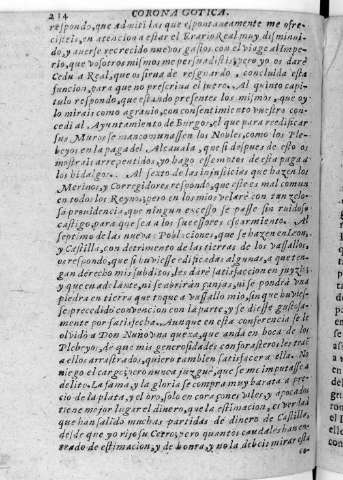 214 CORONA GOTICA.
respondo, que admitì las que espontaneamente me ofre-
cisteis, en atencion a estar el Erario Real muy disminui-
do, y averse recrecido nuevos gastos con el viage al Impe-
rio, que vosotros mismos me persuadisteis; pero yo os darè
Cedula Real, que os sirva de resguardo, concluida esta
funcion, para que no prescriva el fuero. Al quinto capi-
tulo respondo, que estando presentes los mismos, que oy
lo mirais como agravio, con consentimiento vuestro con-
cedi al Ayuntamiento de Burgos, el que para reedificar
sus Muros se mancomunassen los Nobles, como los Ple-
beyos en la paga del Alcavala, que si despues de esto os
mostrais arrepentidos, yo hago essemptos de esta paga a
los hidalgos. Al sexto de las injusticias que hazen los
Merinos, y Corregidores respondo, que este es mal comun
en todos los Reynos; pero en los mios velarè con tan zelo-
sa providencia, que ningun excesso se passe sin ruidoso
castigo, para que sea a los sucessores escarmiento. Al
septimo de las nuevas Poblaciones, que se hazen en Leon,
y Castilla, con detrimento de las tierras de los vassallos,
os respondo, que si huviesse edificadas algunas, a que ten-
gan derecho mis subditos, les darè satisfaccion en juyzio,
y que en adelante, ni se abriràn çanjas, ni se pondrà una
piedra en tierra que toque a vassallo mio, sin que huvies-
se precedido convencion con la parte, y se diesse gustosa-
mente por satisfecha. Aunque en esta conferencia se le
olvidò a Don Nuño una quexa, que anda en boca de los
Plebeyos, de que mis generosidades con forasteros les tra-
a ellos arrastrados, quiero tambien satisfacer a ella. No
niego el cargo; pero nunca juzguè, que se me imputasse a
delito. La fama, y la gloria se compra muy barata a pre-
cio de la plata, y el oro, solo en coraçones viles, y apocados
tiene mejor lugar el dinero, que la estimacion, es verdad
que han salido muchas partidas de dinero de Castilla,
desde que yo rijo su Cetro; pero quantos caudales han en-
trado de estimacion, y de honra, y no la debeis mirar esta